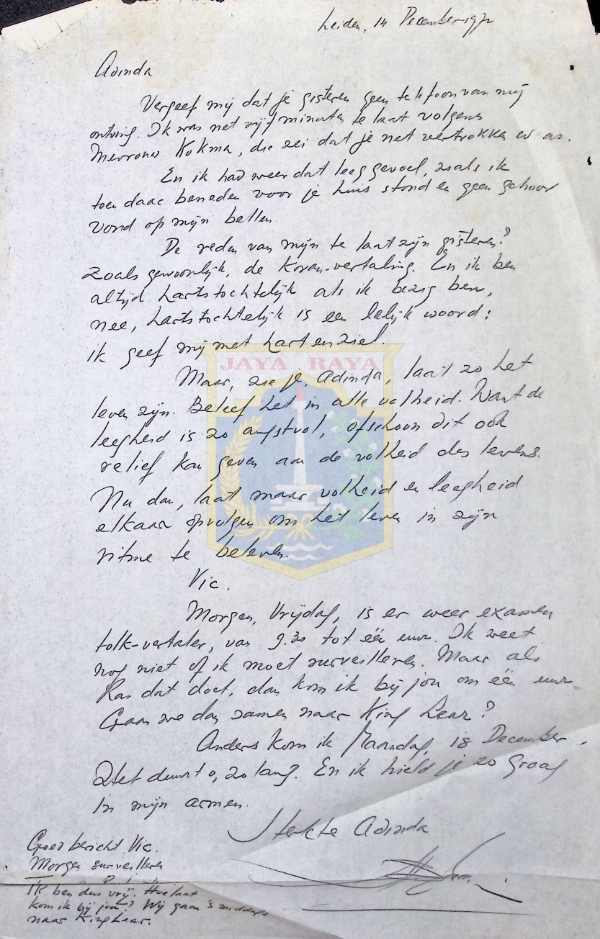 Leiden, 14 December 1972
Adinda
Vergeef mij dat je gisteren geen telefoon van mij
ontving. Ik was net vijf minuten te laat volgens
Mevrouw Kokma, die zei dat je net vertrokken was.
En ik had weer dat leeg gevoel, zoals ik
toen daar beneden voor je huis stond en geen gehoor
vond op mijn bellen.
De reden van mijn te laat zijn gisteren?
Zoals gewoonlijk, de Koran-vertaling. En ik ben
altijd hartstochtelijk als ik bezig ben,
nee, hartstochtelijk is een lelijk woord:
ik geef mij met hart en ziel.
JAYA RAYA
Maar, zie je, Adinda, laat zo het
leven zijn. Beleef het in alle volheid. Want de
leegheid is zo angstvol, ofschoon dit ook
relief kan geven aan de volheid des levens.
Nu dan, laat maar volheid en leegheid
elkaar opvolgen om het leven in zijn
ritme te beleven.
Vic.
Morgen, Vrijdag, is er weer examen
tolk-vertaler, van 9.30 tot één uur. Ik weet
nog niet of ik moet surveilleren. Maar als
Ras dat doet, dan kom ik bij jou om één uur.
Gaan we dan samen naar King Lear?
Anders kom ik Maandag, 18 December.
Het duurt o, zo lang. En ik hield je zo graag
in mijn armen.
Sterkte Adinda
Goed bericht Vic.
Morgen surveilleren
Ik ben dus vrij. Hoe laat
kom ik bij jou? Wij gaan 's middags
naar King Lear.